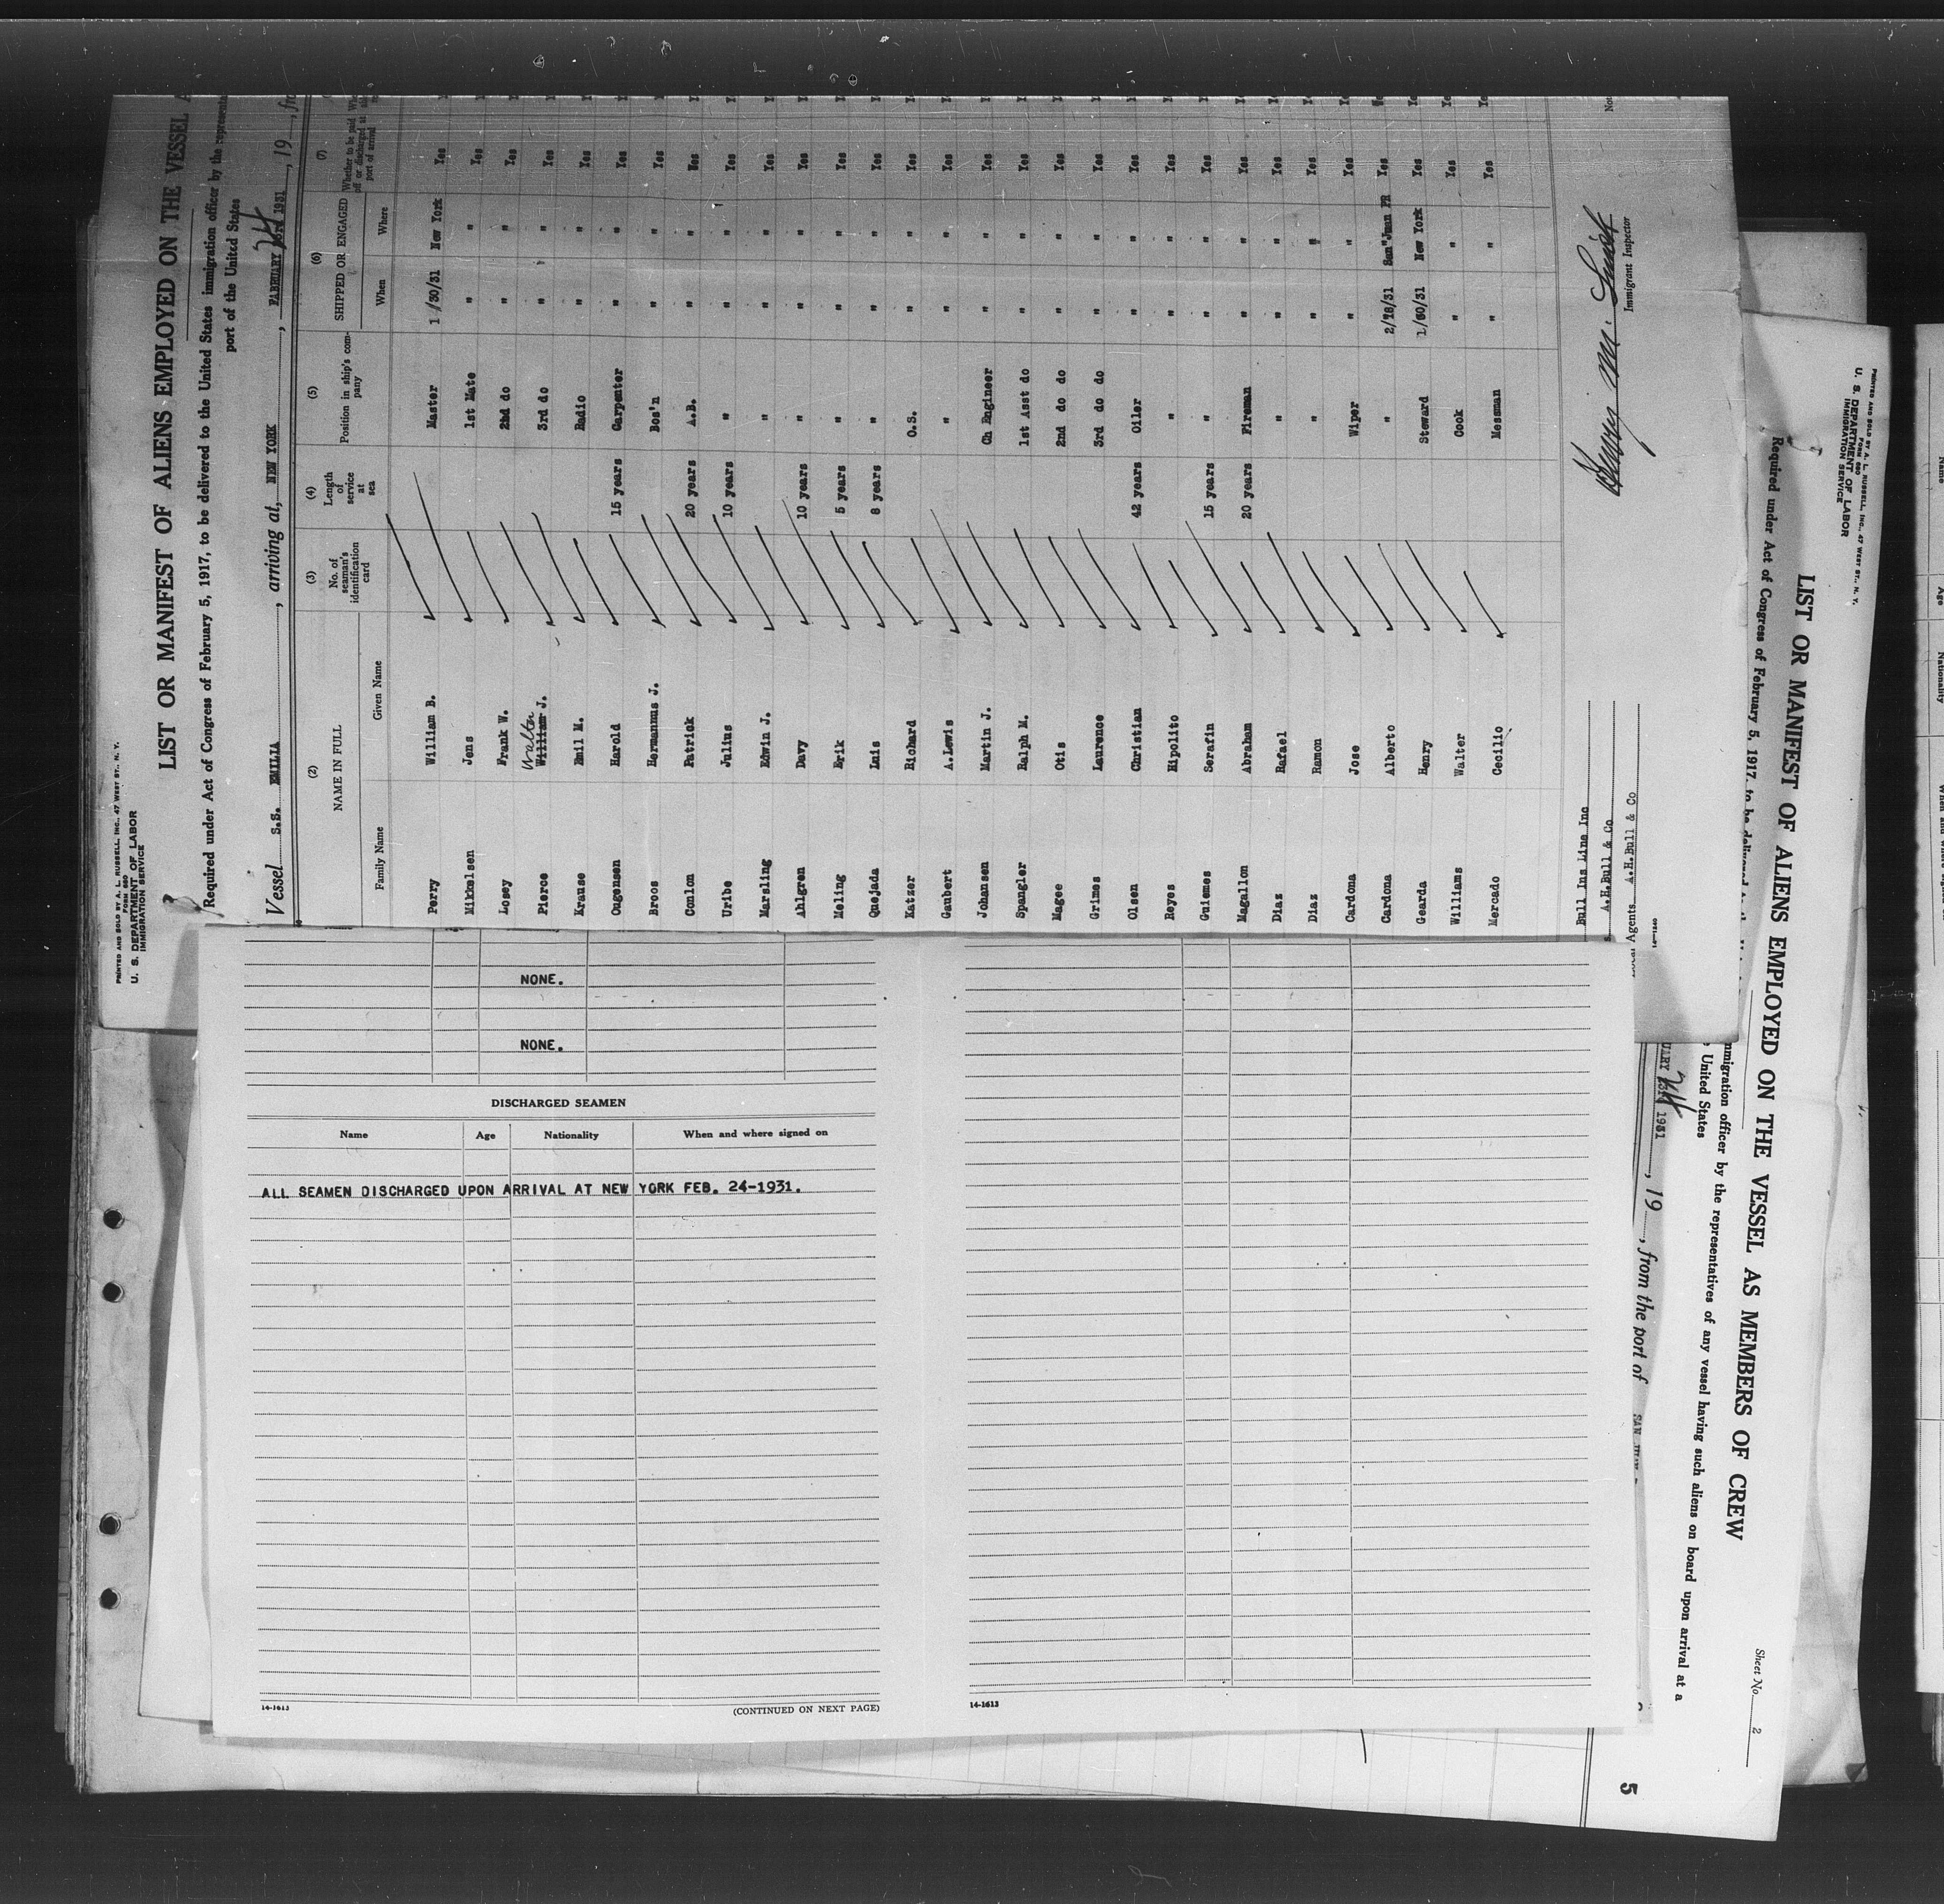 PRINTED AND SOLD BY A. L. RUSSELL, INC., 47 WEST ST., N. Y.
FORM 680
U. S. DEPARTMENT OF LABOR
IMMIGRATION SERVICE
LIST OR MANIFEST OF ALIENS EMPLOYED ON THE VESSEL A
Required under Act of Congress of February 5, 1917, to be delivered to the United States immigration officer by the representa
port of the United States
Vessel S.S. EMILIA, arriving at, NEW YORK, FABRUARY 24 1931, 19, fr
(2) (3) (4) (5) (6) (7)
NAME IN FULL No. of seaman's identification card Length of service at sea Position in ship's company SHIPPED OR ENGAGED Whether to be paid off or discharged at port of arrival
Family Name Given Name When Where
Perry William B. Master 1/30/31 New York Yes
Mikkelsen Jens 1st Mate " " Yes
Losey Frank W. 2nd do " " Yes
Pierce Walter William J. 3rd do " " Yes
Krause Emil M. Radio " " Yes
Ougensen Harold 15 years Carpenter " " Yes
Bros Hermanus J. Bos'n " " Yes
Conlon Patrick 20 years A.B. " " Wes
Uribe Julius 10 years " " " Yes
Marsling Edwin J. " " " Yes
Ahlgren Davy 10 years " " " Yes
Meling Erik 5 years " " " Yes
Quejada Luis 8 years " " " Yes
Katzer Richard O.S. " " Yes
Gaubert A.Lewis " " " Yes
Johansen Martin J. Ch Engineer " " Yes
Spangler Ralph M. 1st Asst do " " Yes
Magee Otis 2nd do do " " Yes
Grimes Laurence 3rd do do " " Yes
Olsen Christian 42 years Oiler " " Yes
Reyes Hipolito " " " Yes
Guiemes Serafin 15 years " " " Yes
Magallon Abraham 20 years Fireman " " Yes
Diaz Rafael " " " Yes
Diaz Ramon " " " Yes
Cardona Jose Wiper " " Yes
Cardona Alberto " 2/18/31 San Juan PR Yes
Gearda Henry Steward 1/30/31 New York Yes
Williams Walter Cook " " Yes
Mercado Cecilio Messman " " Yes
Bull Ins Line Inc
A.H.Bull & Co
Local Agents A.H.Bull & Co
Immigrant Inspector
NONE.
NONE.
DISCHARGED SEAMEN
Name Age Nationality When and where signed on
ALL SEAMEN DISCHARGED UPON ARRIVAL AT NEW YORK FEB. 24-1931.
14-1613 (CONTINUED ON NEXT PAGE)
14-1613
PRINTED AND SOLD BY A. L. RUSSELL, INC., 47 WEST ST., N. Y.
FORM 680
U. S. DEPARTMENT OF LABOR
IMMIGRATION SERVICE
LIST OR MANIFEST OF ALIENS EMPLOYED ON THE VESSEL AS MEMBERS OF CREW
Required under Act of Congress of February 5, 1917, to be delivered
mmigration officer by the representatives of any vessel having such aliens on board upon arrival at a
United States
UARY 24 1931, 19, from the port of SAN JUAN
Sheet No. 2
5
Name
Age
Nationality